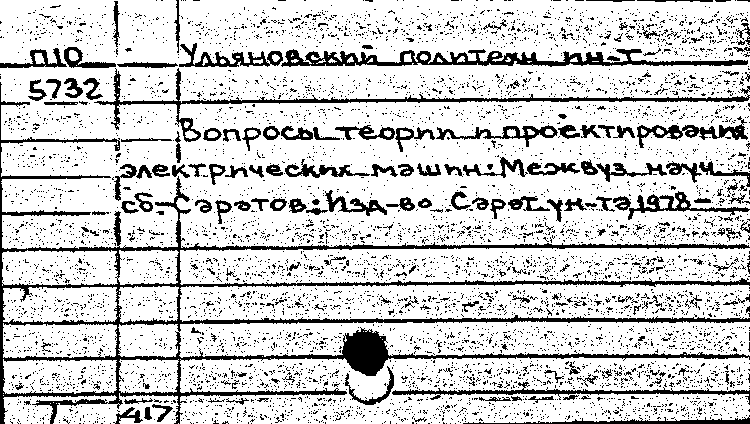 П10 Ульяновский политехн ин-т
5732
Вопросы теории и проектирования
электрических машин: Межвуз. науч.
сб.-Саратов: Изд-во Сарат. ун-та, 1978-
417